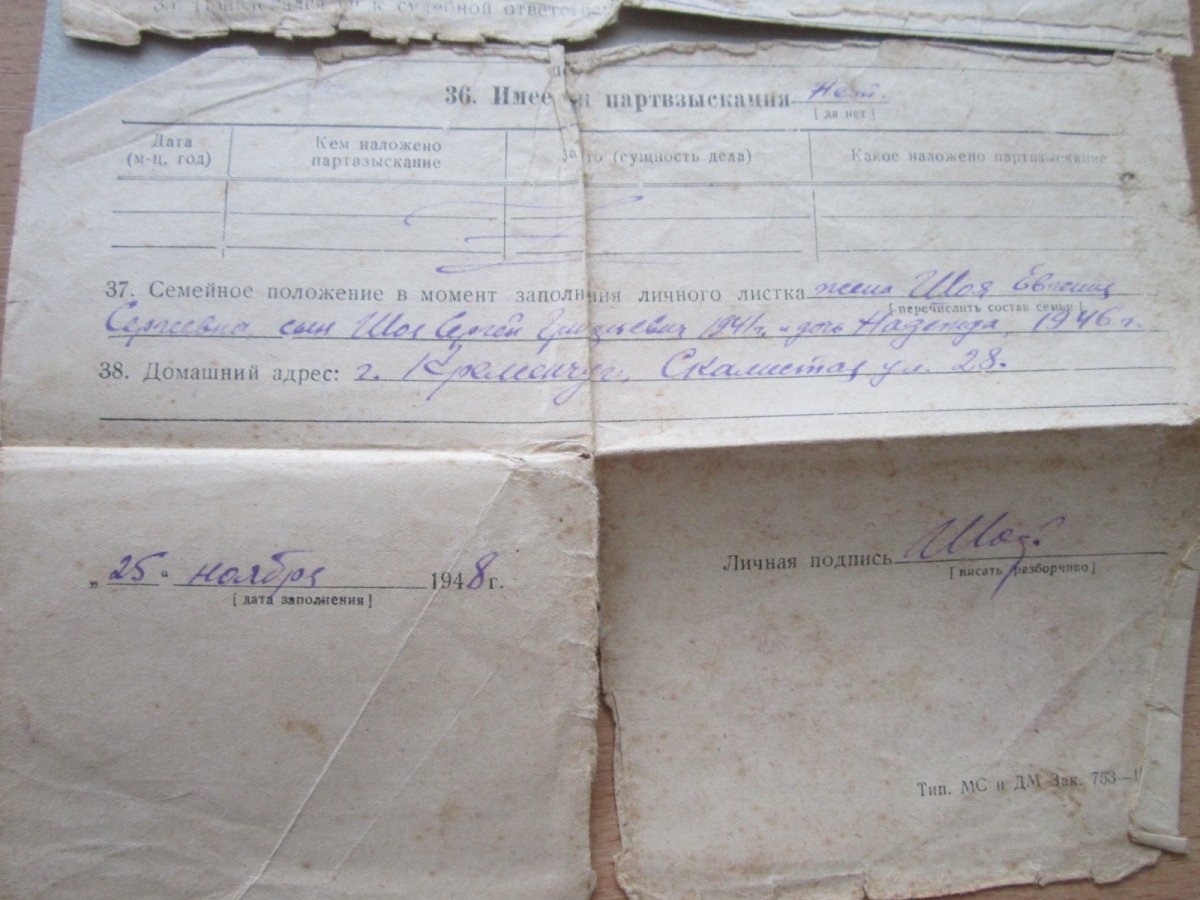 35. Привлекался ли к судебной ответстве
36. Имее ли партвзыскания Нет.
[ да нет ]
Дата
(м-ц, год)
Кем наложено
партвзыскание
За что (сущность дела)
Какое наложено партвзыскание
37. Семейное положение в момент заполнения личного листка жена Шоя Евгения
[ перечислить состав семьи ]
Сергеевна, сын Шоя Сергей Григорьевич 1941г. и дочь Надежда, 1946 г.
38. Домашний адрес: г. Кременчуг, Скалистая ул. 28.
„25“ ноября 1948 г.
[ дата заполнения ]
Личная подпись Шоя
[ писать разборчиво ]
Тип. МС и ДМ Зак. 753—1